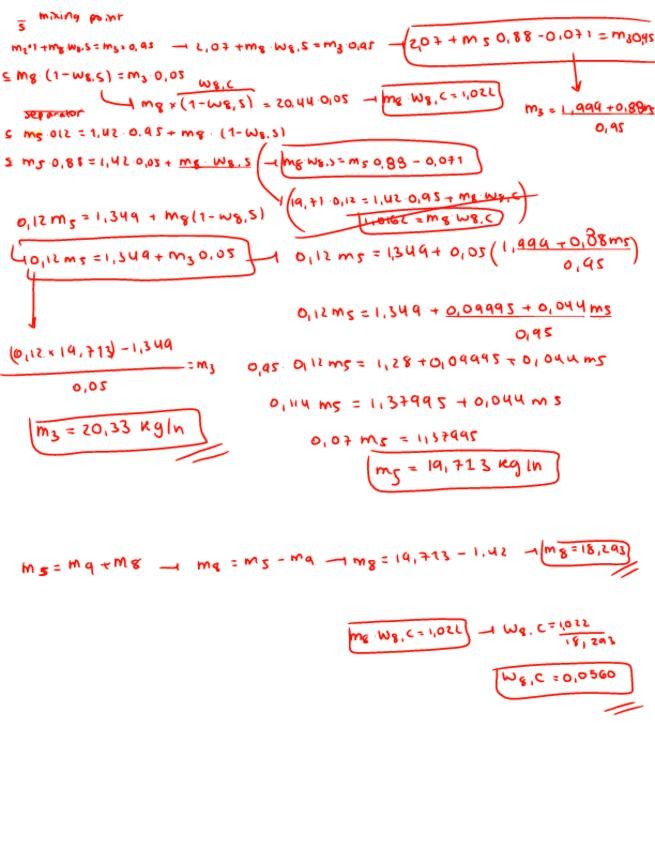 s̄ mixing point
m₂·1 + m8 w8,s = m3·0,95 → 2,07 + m8·w8,s = m3 0,95 → 2,07 + m5 0,88 - 0,071 = m3 0,95
s m8 (1-w8,s) = m3 0,05
w8,c
m8 × (1-w8,s) = 20.44·0,05 → m8 w8,c = 1,022
m3 = 1,999 + 0,88m5 / 0,95
separator
s m5 012 = 1,42·0.95 + m8·(1-w8,s)
s m5 0,88 = 1,42·0,05 + m8·w8,s → m8 w8,s = m5 0,88 - 0,071
19,71·0,12 = 1,42 0,95 + m8 w8,c
1,0162 = m8 w8,c
0,12 m5 = 1,349 + m8(1-w8,s)
0,12 m5 = 1,349 + m3 0,05 → 0,12 m5 = 1,349 + 0,05 (1,999 + 0,88m5 / 0,95)
0,12 m5 = 1,349 + 0,09995 + 0,044 m5 / 0,95
(0,12 × 19,713) - 1,349 / 0,05 = m3
0,95·0,12 m5 = 1,28 + 0,09995 + 0,044 m5
0,114 m5 = 1,37995 + 0,044 m5
m3 = 20,33 kg/h
0,07 m5 = 1,37995
m5 = 19,713 kg/h
m5 = m9 + m8 → m8 = m5 - m9 → m8 = 19,713 - 1,42 → m8 = 18,293
m8 w8,c = 1,022 → w8,c = 1,022 / 18,293
w8,c = 0,0560